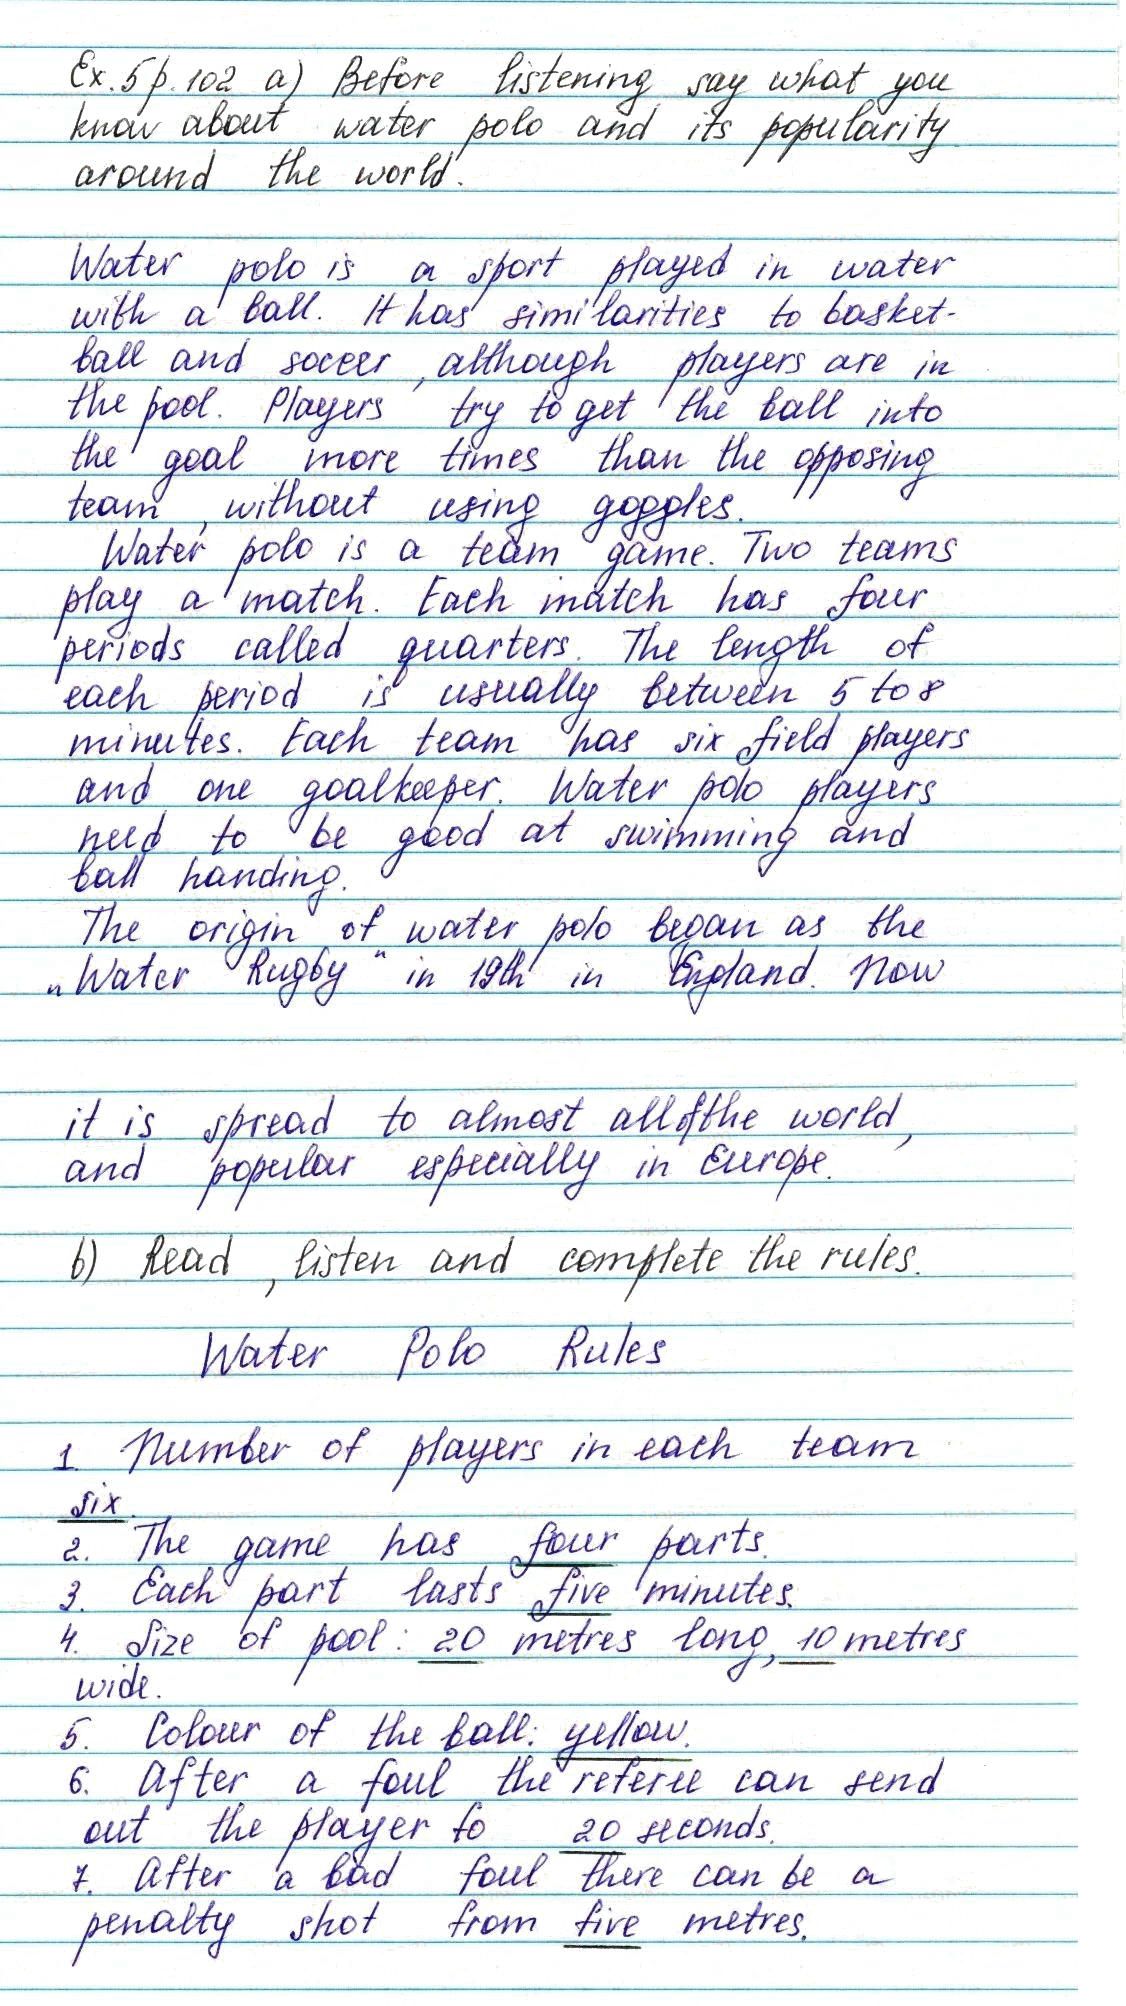 Ex. 5 p. 102 a) Before listening say what you
know about water polo and its popularity
around the world.
Water polo is a sport played in water
with a ball. It has similarities to basket-
ball and soccer, although players are in
the pool. Players try to get the ball into
the goal more times than the opposing
team, without using goggles.
Water polo is a team game. Two teams
play a match. Each match has four
periods called quarters. The length of
each period is usually between 5 to 8
minutes. Each team has six field players
and one goalkeeper. Water polo players
need to be good at swimming and
ball handing.
The origin of water polo began as the
„Water Rugby" in 19th in England. Now
it is spread to almost all of the world,
and popular especially in Europe.
b) Read, listen and complete the rules.
Water Polo Rules
1. Number of players in each team
six.
2. The game has four parts.
3. Each part lasts five minutes.
4. Size of pool: 20 metres long, 10 metres
wide.
5. Colour of the ball: yellow.
6. After a foul the referee can send
out the player fo 20 seconds.
7. After a bad foul there can be a
penalty shot from five metres.